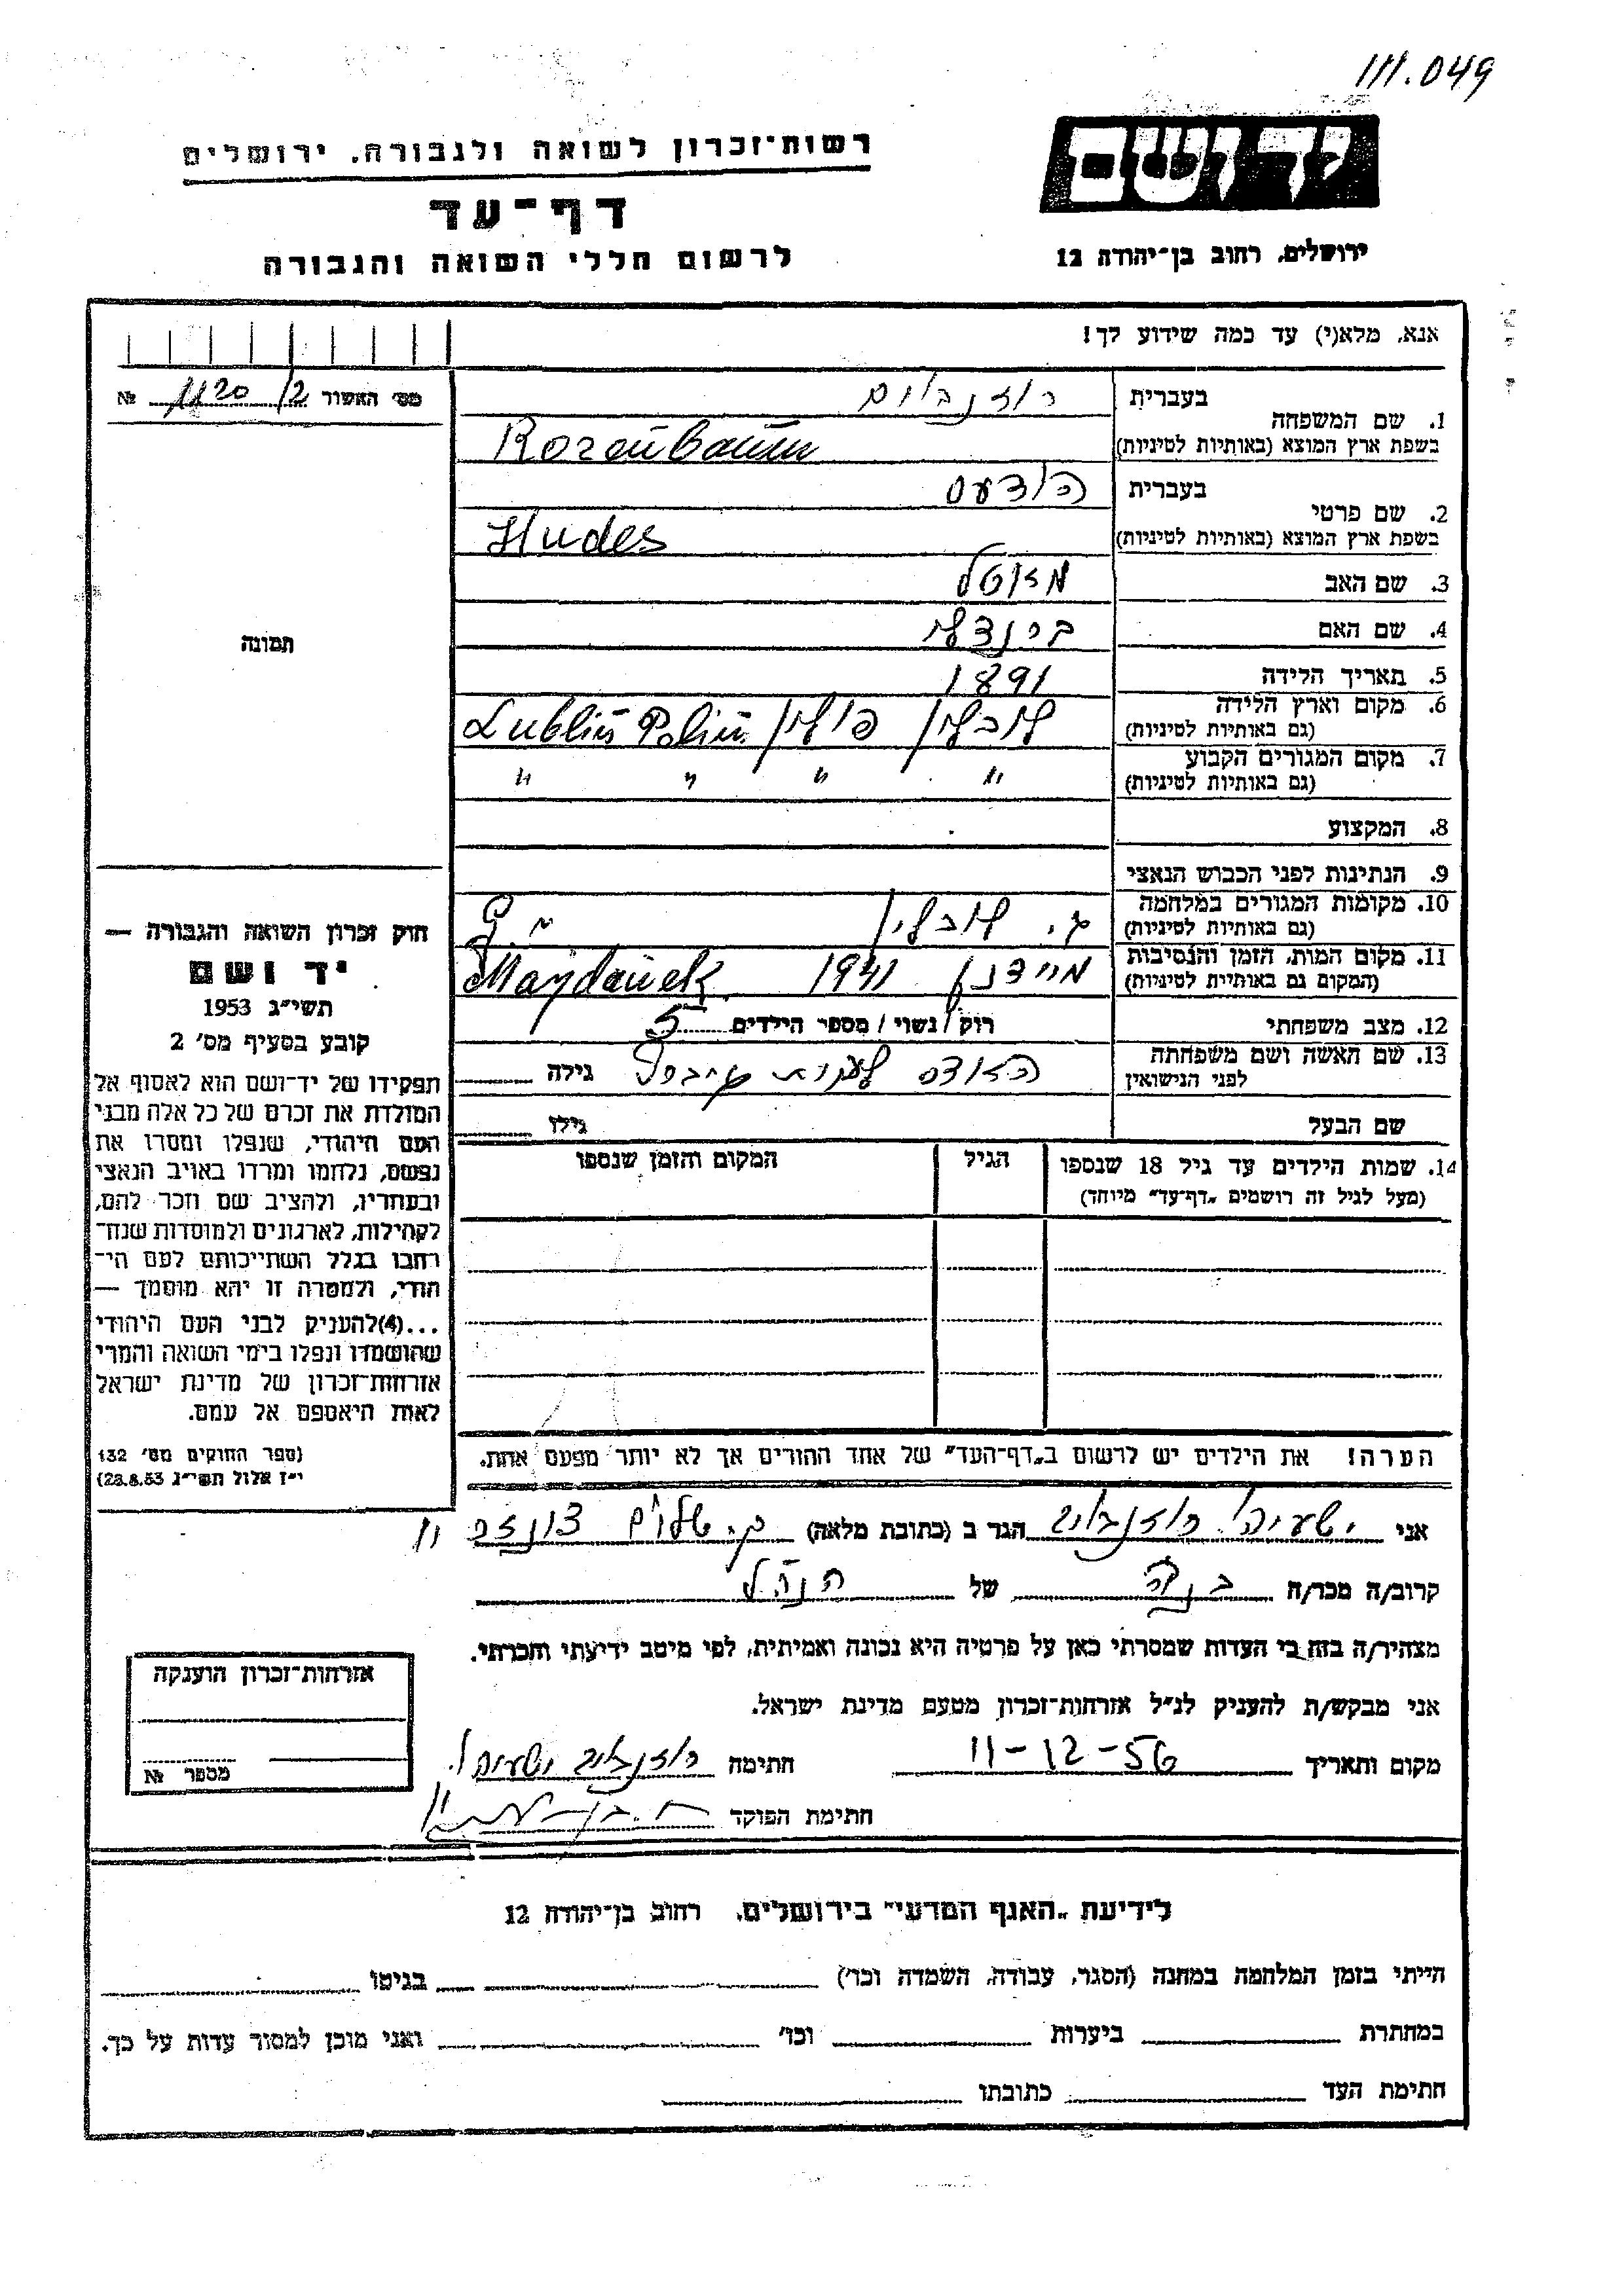 111.049
רשות־זכרון לשואה ולגבורה, ירושלים
יד ושם
דף־עד
ירושלים, רחוב בן־יהודה 12
לרשום חללי השואה והגבורה
אנא, מלא(י) עד כמה שידוע לך!
מס׳ האשור 1120/2 №
1. שם המשפחה
בעברית רוזנבוים
בשפת ארץ המוצא (באותיות לטיניות) Rozenbaum
2. שם פרטי
בעברית הודעס
בשפת ארץ המוצא (באותיות לטיניות) Hudes
3. שם האב מוטל
4. שם האם
5. תאריך הלידה 1891
6. מקום וארץ הלידה לובלין פולין Lublin Polin
(גם באותיות לטיניות)
7. מקום המגורים הקבוע " " " "
(גם באותיות לטיניות)
8. המקצוע
9. הנתינות לפני הכבוש הנאצי
10. מקומות המגורים במלחמה ג. לובלין
(גם באותיות לטיניות)
11. מקום המות, הזמן והנסיבות מיידנק 1941 Majdanek
(המקום גם באותיית לטיניות)
12. מצב משפחתי רוק/נשוי/מספר הילדים 5
13. שם האשה ושם משפחתה
לפני הנישואין
הודס גילה
שם הבעל גילו
14. שמות הילדים עד גיל 18 שנספו
(מעל לגיל זה רושמים „דף־עד״ מיוחד)
הגיל
המקום והזמן שנספו
הערה! את הילדים יש לרשום ב„דף־העד״ של אחד ההורים אך לא יותר מפעם אחת.
תמונה
חוק זכרון השואה והגבורה —
יד ושם
תשי״ג 1953
קובע בסעיף מס׳ 2
תפקידו של יד־ושם הוא לאסוף אל
המולדת את זכרם של כל אלה מבני
העם היהודי, שנפלו ומסרו את
נפשם, נלחמו ומרדו באויב הנאצי
ובעוזריו, ולהציב שם וזכר להם,
לקהילות, לארגונים ולמוסדות שנח־
רבו בגלל השתייכותם לעם הי־
הודי, ולמטרה זו יהא מוסמך —
...(4)להעניק לבני העם היהודי
שהושמדו ונפלו בימי השואה והמרי
אזרחות־זכרון של מדינת ישראל
לאות היאספם אל עמם.
(ספר החוקים מס׳ 132
י״ז אלול תשי״ג 28.8.53)
אני ישעיהו רוזנבוים הגר ב (כתובת מלאה) ק. שלום 11
קרוב/ה מכר/ה של הנ״ל
מצהיר/ה בזה כי העדות שמסרתי כאן על פרטיה היא נכונה ואמיתית, לפי מיטב ידיעתי והכרתי.
אני מבקש/ת להעניק לנ״ל אזרחות־זכרון מטעם מדינת ישראל.
מקום ותאריך 11-12-56 חתימה רוזנבוים ישעיהו
חתימת הפוקד
אזרחות־זכרון הוענקה
מספר №
לידיעת „האגף המדעי״ בירושלים, רחוב בן־יהודה 12
הייתי בזמן המלחמה במחנה (הסגר, עבודה, השמדה וכו׳) בגיטו
במחתרת ביערות וכו׳ ואני מוכן למסור עדות על כך.
חתימת העד כתובתו